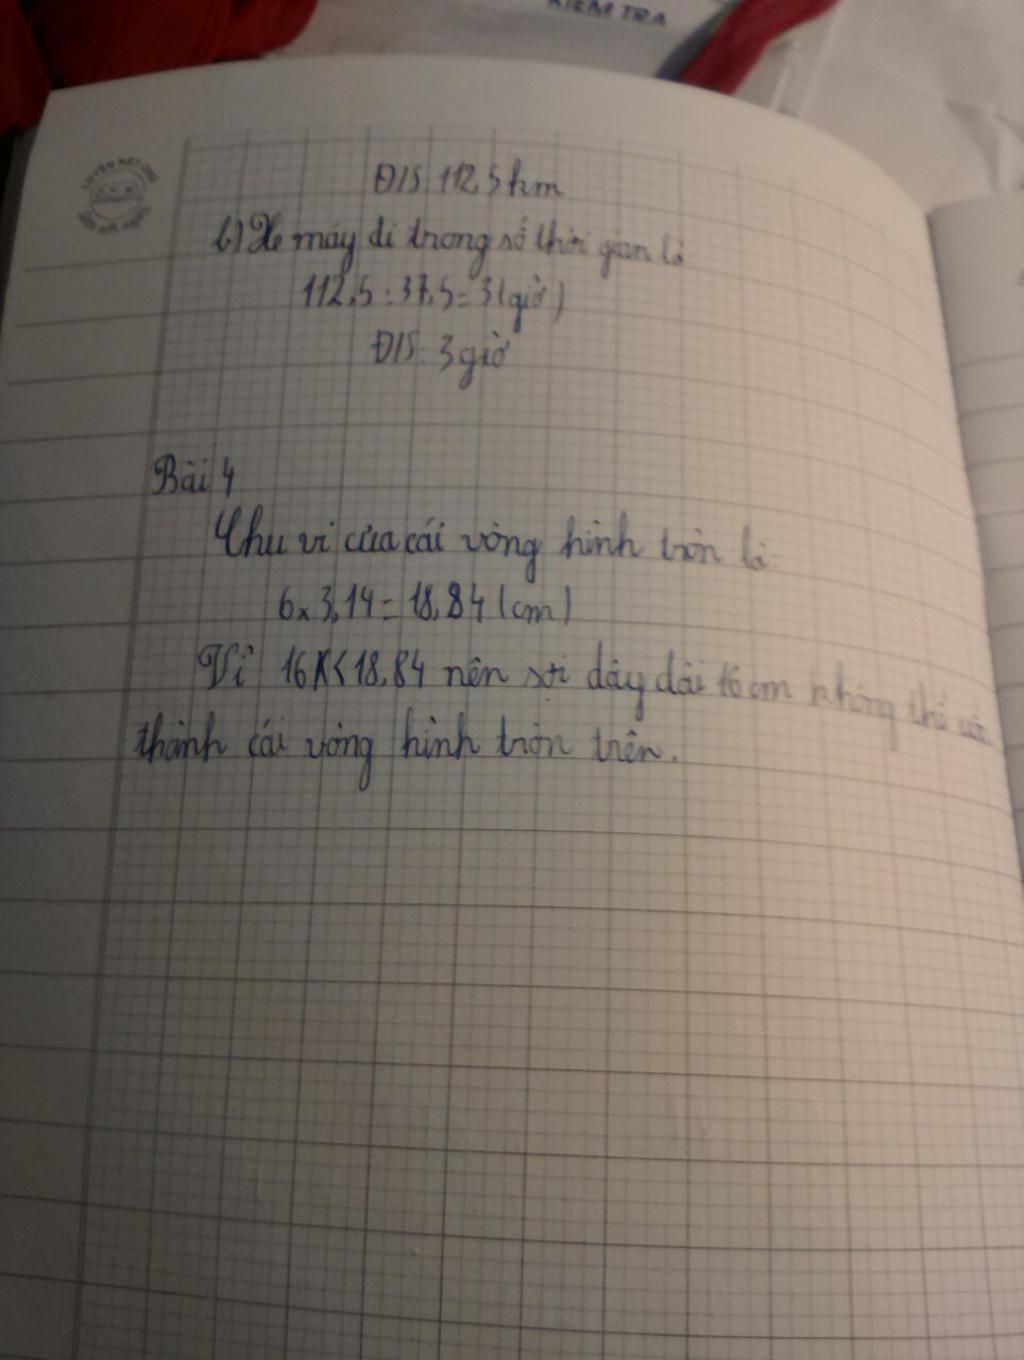 KIỂM TRA
LUYỆN NÉT CHỮ
Đ/S: 112,5 km
b) Xe máy đi trong số thời gian là
112,5 : 37,5 = 3 (giờ)
Đ/S: 3 giờ
Bài 4
Chu vi của cái vòng hình tròn là:
6 x 3,14 = 18,84 (cm)
Vì 16 < 18,84 nên sợi dây dài 16 cm không thể uốn
thành cái vòng hình tròn trên.